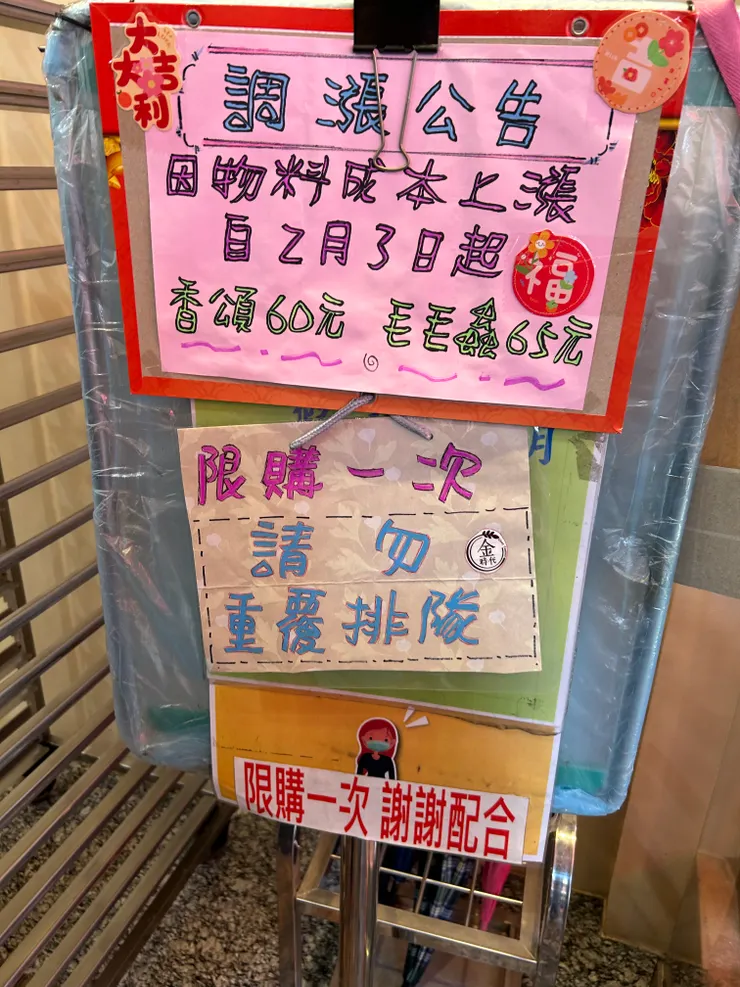 大吉
大利
吉
調漲公告
因物料成本上漲
自2月3日起
福
香頌60元 毛毛蟲65元
限購一次
請勿
金
時代
重覆排隊
限購一次 謝謝配合